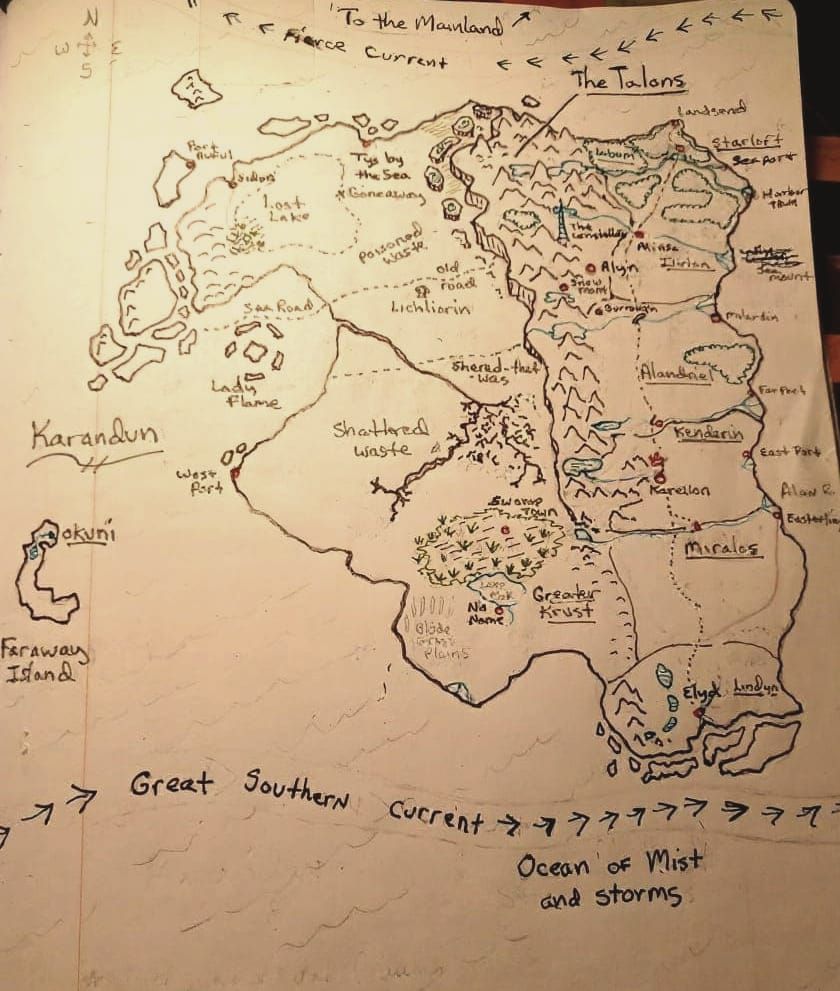 N
W E
S
To the Mainland
Fierce Current
The Talons
Landsend
Starloft
Seaport
Harbor
Town
Sea
mount
Port
Sidon
Tys by
the Sea
Goneaway
Lost
Lake
Poisoned
Waste
old
road
Lichliorin
Sea Road
The
Alyn
Snow
Burrough
Milardin
Lady
Flame
Shered-that
was
Alandriel
Far Port
Karandun
Shattered
Waste
Kendarin
East Port
West
Port
Karellon
Alan
Swamp
Town
Miralos
Okuni
Greater
Krust
No
Name
Blade
Grass
Plains
Faraway
Island
Elyd
Lindyn
Great Southern Current
Ocean of Mist
and storms